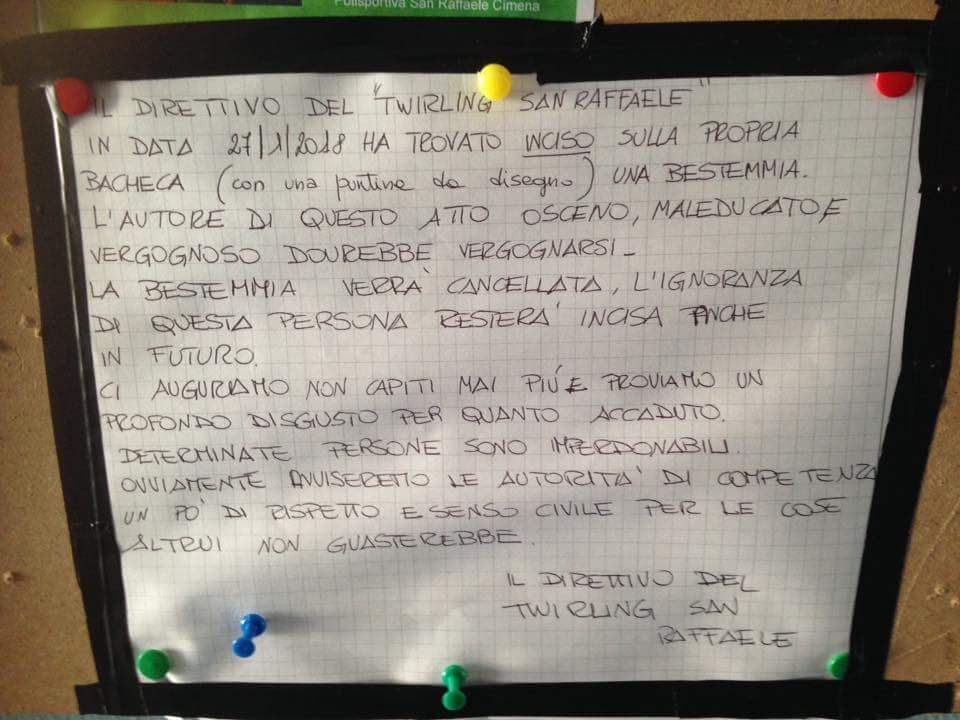 Polisportiva San Raffaele Cimena
IL DIRETTIVO DEL "TWIRLING SAN RAFFAELE"
IN DATA 27/1/2018 HA TROVATO INCISO SULLA PROPRIA
BACHECA (con una puntina da disegno) UNA BESTEMMIA.
L'AUTORE DI QUESTO ATTO OSCENO, MALEDUCATO E
VERGOGNOSO DOVREBBE VERGOGNARSI_
LA BESTEMMIA VERRÀ CANCELLATA, L'IGNORANZA
DI QUESTA PERSONA RESTERA' INCISA ANCHE
IN FUTURO.
CI AUGURIAMO NON CAPITI MAI PIÚ E PROVIAMO UN
PROFONDO DISGUSTO PER QUANTO ACCADUTO.
DETERMINATE PERSONE SONO IMPERDONABILI.
OVVIAMENTE AVVISEREMO LE AUTORITA' DI COMPETENZA
UN PO' DI RISPETTO E SENSO CIVILE PER LE COSE
ALTRUI NON GUASTEREBBE.
IL DIRETTIVO DEL
TWIRLING SAN
RAFFAELE